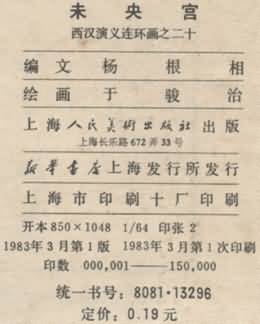 未央宫
西汉演义连环画之二十
编文 杨根相
绘画 于骏治
上海人民美術出版社出版
上海长乐路672弄33号
新华書店上海发行所发行
上海市印刷十厂印刷
开本850×1048 1/64 印张2
1983年3月第1版 1983年3月第1次印刷
印数 000,001——150,000
统一书号：8081·13296
定价：0.19元